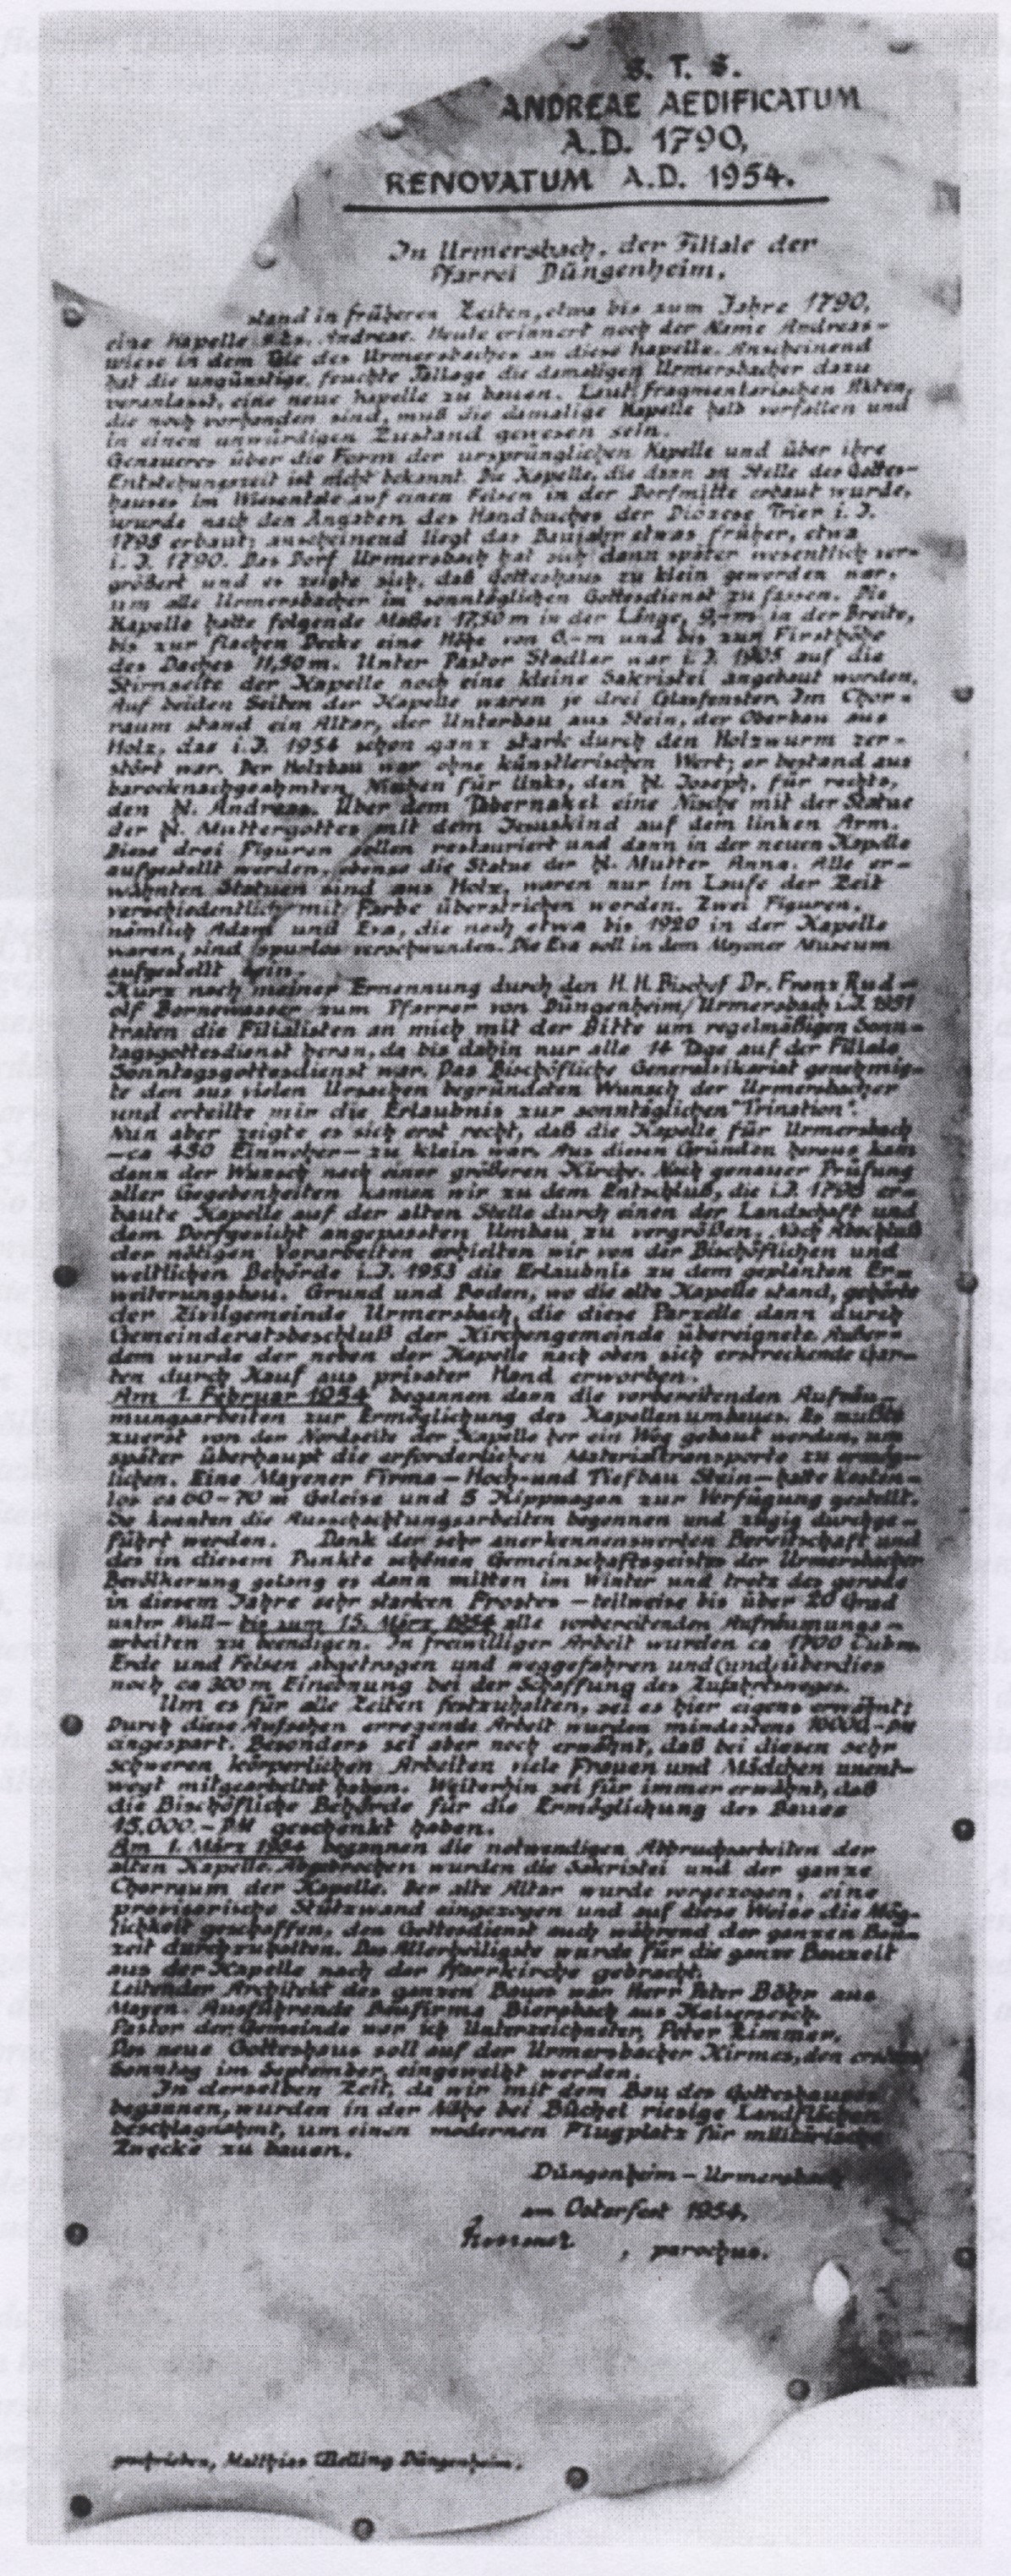 S. T. S.
ANDREAE AEDIFICATUM
A.D. 1790,
RENOVATUM A.D. 1954.
In Urmersbach, der Filiale der
Pfarrei Düngenheim,
stand in früheren Zeiten, etwa bis zum Jahre 1790,
eine Kapelle Andreae. Heute erinnert noch der Name Andreas-
wiese in dem Tale des Urmersbaches an diese Kapelle. Anscheinend
hat die ungünstige, feuchte Tallage die damaligen Urmersbacher dazu
veranlasst, eine neue Kapelle zu bauen. Laut fragmentarischen Akten,
die noch vorhanden sind, muß die damalige Kapelle halb verfallen und
in einen unwürdigen Zustand gewesen sein.
Genaueres über die Form der ursprünglichen Kapelle und über ihre
Entstehungszeit ist nicht bekannt. Die Kapelle, die dann an Stelle des Gottes-
hauses im Wiesentale auf einen Felsen in der Dorfmitte erbaut wurde,
wurde nach den Angaben des Handbuches der Diözese Trier i. J.
erbaut; anscheinend liegt das Baujahr etwas früher, etwa
i. J. 1790. Das Dorf Urmersbach hat sich dann später wesentlich ver-
größert und es zeigte sich, daß Gotteshaus zu klein geworden war,
um alle Urmersbacher im sonntäglichen Gottesdienst zu fassen. Die
Kapelle hatte folgende Maße: 17,50 m in der Länge, 9,-m in der Breite,
bis zur flachen Decke eine Höhe von 6,-m und bis zur Firsthöhe
des Daches 11,50 m. Unter Pastor Stadler war i. J. 1905 auf die
Stirnseite der Kapelle noch eine kleine Sakristei angebaut worden.
Auf beiden Seiten der Kapelle waren je drei Glasfenster. Im Chor-
raum stand ein Altar, der Unterbau aus Stein, der Oberbau aus
Holz, das i. J. 1954 schon ganz stark durch den Holzwurm zer-
stört war. Der Holzbau war ohne künstlerischen Wert; er bestand aus
barocknachgeahmten Nischen für links, den hl. Joseph, für rechts,
den hl. Andreas. Über dem Tabernakel eine Nische mit der Statue
der hl. Muttergottes mit dem Jesuskind auf dem linken Arm.
Diese drei Figuren sollen restauriert und dann in der neuen Kapelle
aufgestellt werden, ebenso die Statue der hl. Mutter Anna. Alle er-
wähnten Statuen sind aus Holz, waren nur im Laufe der Zeit
verschiedentlich mit Farbe überstrichen worden. Zwei Figuren,
nämlich Adam und Eva, die noch etwa bis 1920 in der Kapelle
waren, sind spurlos verschwunden. Die Eva soll in dem Mayener Museum
aufgestellt sein.
Kurz nach meiner Ernennung durch den H. H. Bischof Dr. Franz Rud-
olf Bornewasser zum Pfarrer von Düngenheim/Urmersbach i. J. 1951
traten die Filialisten an mich mit der Bitte um regelmäßigen Sonn-
tagsgottesdienst heran, da bis dahin nur alle 14 Tage auf der Filiale
Sonntagsgottesdienst war. Das Bischöfliche Generalvikariat genehmig-
te den aus vielen Ursachen begründeten Wunsch der Urmersbacher
und erteilte mir die Erlaubnis zur sonntäglichen "Trination".
Nun aber zeigte es sich erst recht, daß die Kapelle für Urmersbach
-ca 450 Einwoher- zu klein war. Aus diesen Gründen heraus kam
dann der Wunsch nach einer größeren Kirche. Nach genauer Prüfung
aller Gegebenheiten kamen wir zu dem Entschluß, die i. J. er-
baute Kapelle auf der alten Stelle durch einen der Landschaft und
dem Dorfgesicht angepassten Umbau zu vergrößern. Nach Abschluß
der nötigen Vorarbeiten erhielten wir von der Bischöflichen und
weltlichen Behörde i. J. 1953 die Erlaubnis zu dem geplanten Er-
weiterungsbau. Grund und Boden, wo die alte Kapelle stand, gehörte
der Zivilgemeinde Urmersbach, die diese Parzelle dann durch
Gemeinderatsbeschluß der Kirchengemeinde übereignete. Außer-
dem wurde der neben der Kapelle nach oben sich erstreckende Gar-
ten durch Kauf aus privater Hand erworben.
Am 1. Februar 1954 begannen dann die vorbereitenden Aufräu-
mungsarbeiten zur Ermöglichung des Kapellenumbaues. Es mußte
zuerst von der Nordseite der Kapelle her ein Weg gebaut werden, um
später überhaupt die erforderlichen Materialtransporte zu ermög-
lichen. Eine Mayener Firma - Hoch- und Tiefbau Stein - hatte kosten-
los ca 60-70 m Geleise und 5 Kippwagen zur Verfügung gestellt.
So konnten die Ausschachtungsarbeiten begonnen und zügig durchge-
führt werden. Dank der sehr anerkennenswerten Bereitschaft und
des in diesem Punkte schönen Gemeinschaftsgeistes der Urmersbacher
Bevölkerung gelang es dann mitten im Winter und trotz des gerade
in diesem Jahre sehr starken Frostes - teilweise bis über 20 Grad
unter Null - bis zum 15. März 1954 alle vorbereitenden Aufräumungs-
arbeiten zu beendigen. In freiwilliger Arbeit wurden ca 1700 Cubm.
Erde und Felsen abgetragen und weggefahren und (und) überdies
noch ca 300 m Einebnung bei der Schaffung des Zufahrtsweges.
Um es für alle Zeiten festzuhalten, sei es hier eigens erwähnt:
Durch diese Aufsehen erregende Arbeit wurden mindestens DM
eingespart. Besonders sei aber noch erwähnt, daß bei diesen sehr
schweren körperlichen Arbeiten viele Frauen und Mädchen unent-
wegt mitgearbeitet haben. Weiterhin sei für immer erwähnt, daß
die Bischöfliche Behörde für die Ermöglichung des Baues
15.000.- DM geschenkt haben.
Am 1. März 1954 begannen die notwendigen Abbrucharbeiten der
alten Kapelle. Abgebrochen wurden die Sakristei und der ganze
Chorraum der Kapelle. Der alte Altar wurde vorgezogen, eine
provisorische Stützwand eingezogen und auf diese Weise die Mög-
lichkeit geschaffen, den Gottesdienst auch während der ganzen Bau-
zeit durchzuhalten. Das Allerheiligste wurde für die ganze Bauzeit
aus der Kapelle nach der Pfarrkirche gebracht.
Leitender Architekt des ganzen Baues war Herr Peter Böhr aus
Mayen. Ausführende Baufirma Biersbach aus Kaisersesch.
Pastor der Gemeinde war ich Unterzeichneter, Peter Zimmer.
Das neue Gotteshaus soll auf der Urmersbacher Kirmes, den ersten
Sonntag im September, eingeweiht werden.
In derselben Zeit, da wir mit dem Bau des Gotteshauses
begannen, wurden in der Nähe bei Büchel riesige Landflächen
beschlagnahmt, um einen modernen Flugplatz für militärische
Zwecke zu bauen.
Düngenheim - Urmersbach
am Osterfest 1954.
, parochus.
geschrieben, Matthias Düngenheim.